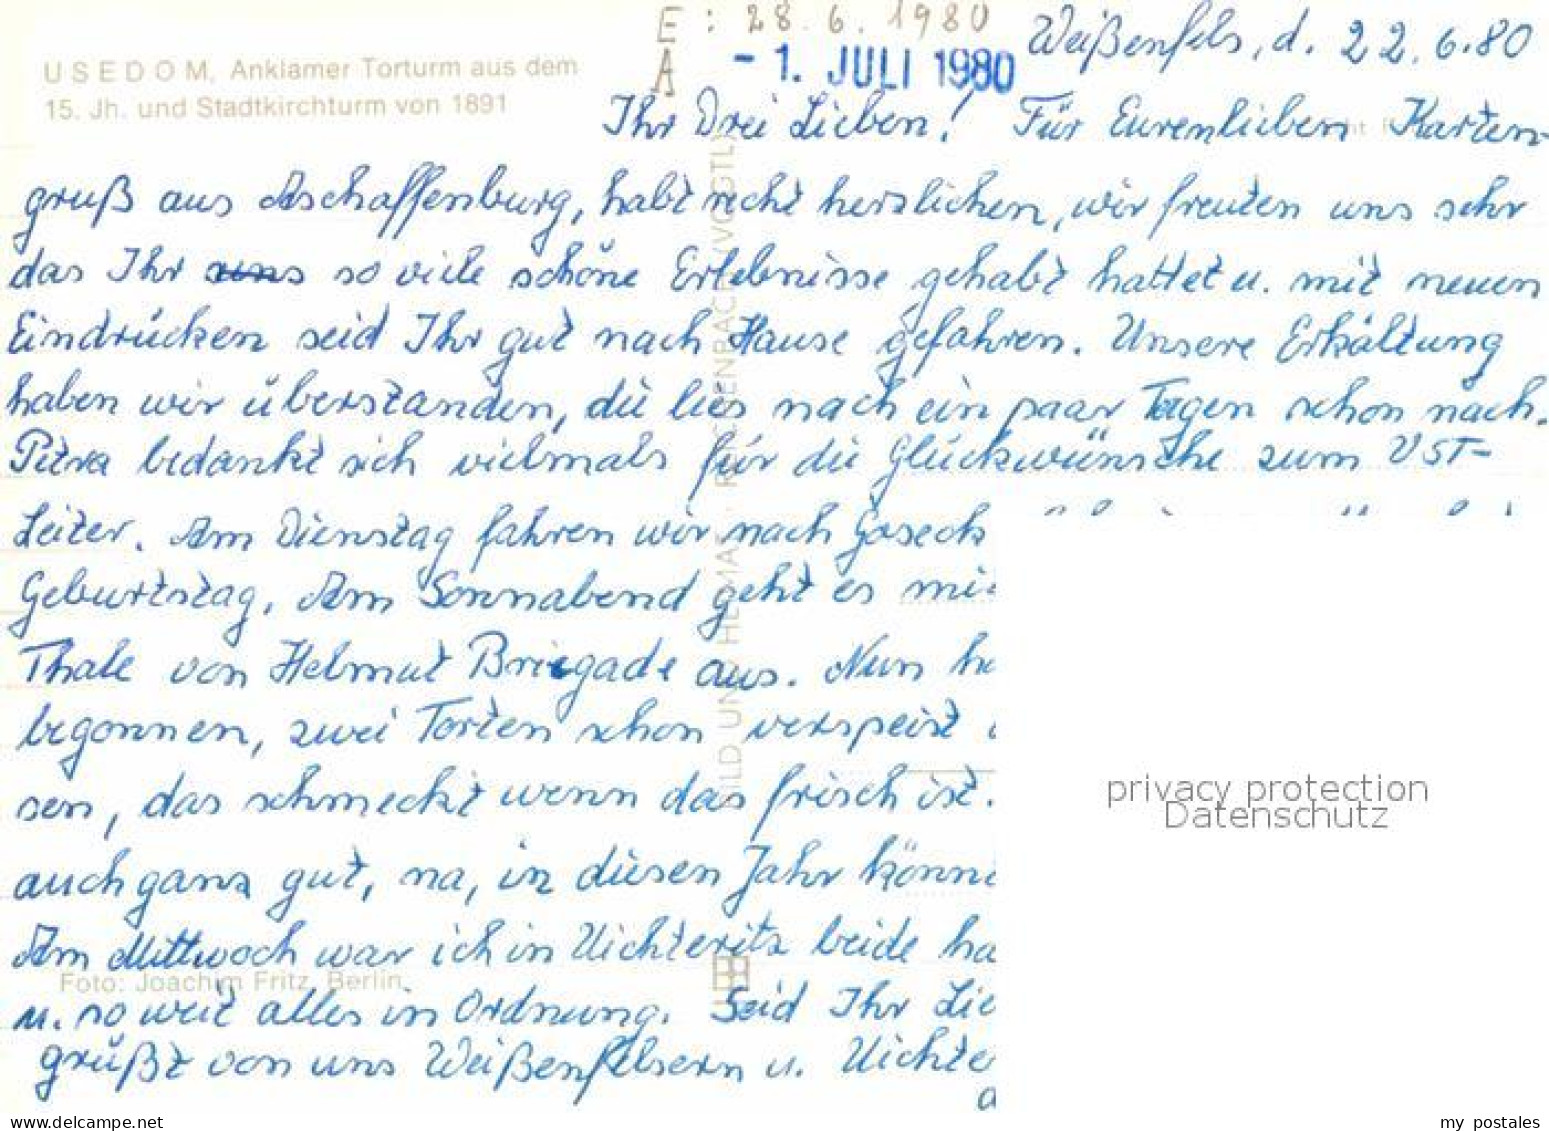 E: 28.6.1980
Weißenfels, d. 22.6.80
A - 1. JULI 1980
USEDOM, Anklamer Torturm aus dem
15. Jh. und Stadtkirchturm von 1891
Ihr Drei Lieben! Für Eurenlieben Karten-
gruß aus Aschaffenburg, habt recht herzlichen, wir freuten uns sehr
das Ihr uns so viele schöne Erlebnisse gehabt hattet u. mit neuen
Eindrücken seid Ihr gut nach Hause gefahren. Unsere Erkältung
haben wir überstanden, die lies nach ein paar Tagen schon nach.
Petra bedankt sich vielmals für die Glückwünsche zum VST-
Leiter. Am Dienstag fahren wir nach Goseck
Geburtstag. Am Sonnabend geht es mi
Thale von Helmut Briegade aus. Nun h
begonnen, zwei Torten schon verspeist
sen, das schmeckt wenn das frisch ist.
auch ganz gut, na, in diesen Jahr könn
Am Mittwoch war ich in Uichteritz beide ha
Foto: Joachim Fritz, Berlin
u. so weit alles in Ordnung. Seid Ihr Lie
grüßt von uns Weißenfelsern u. Uichte
a
BILD UND HEIMAT REICHENBACH (VOGTL)
privacy protection
Datenschutz
www.delcampe.net
my_postales